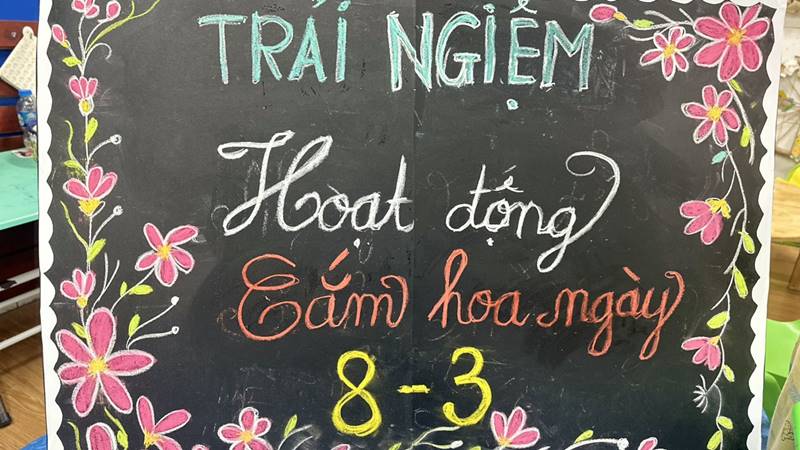 TRÁI NGIỆM
Hoạt động
Cắm hoa ngày
8-3